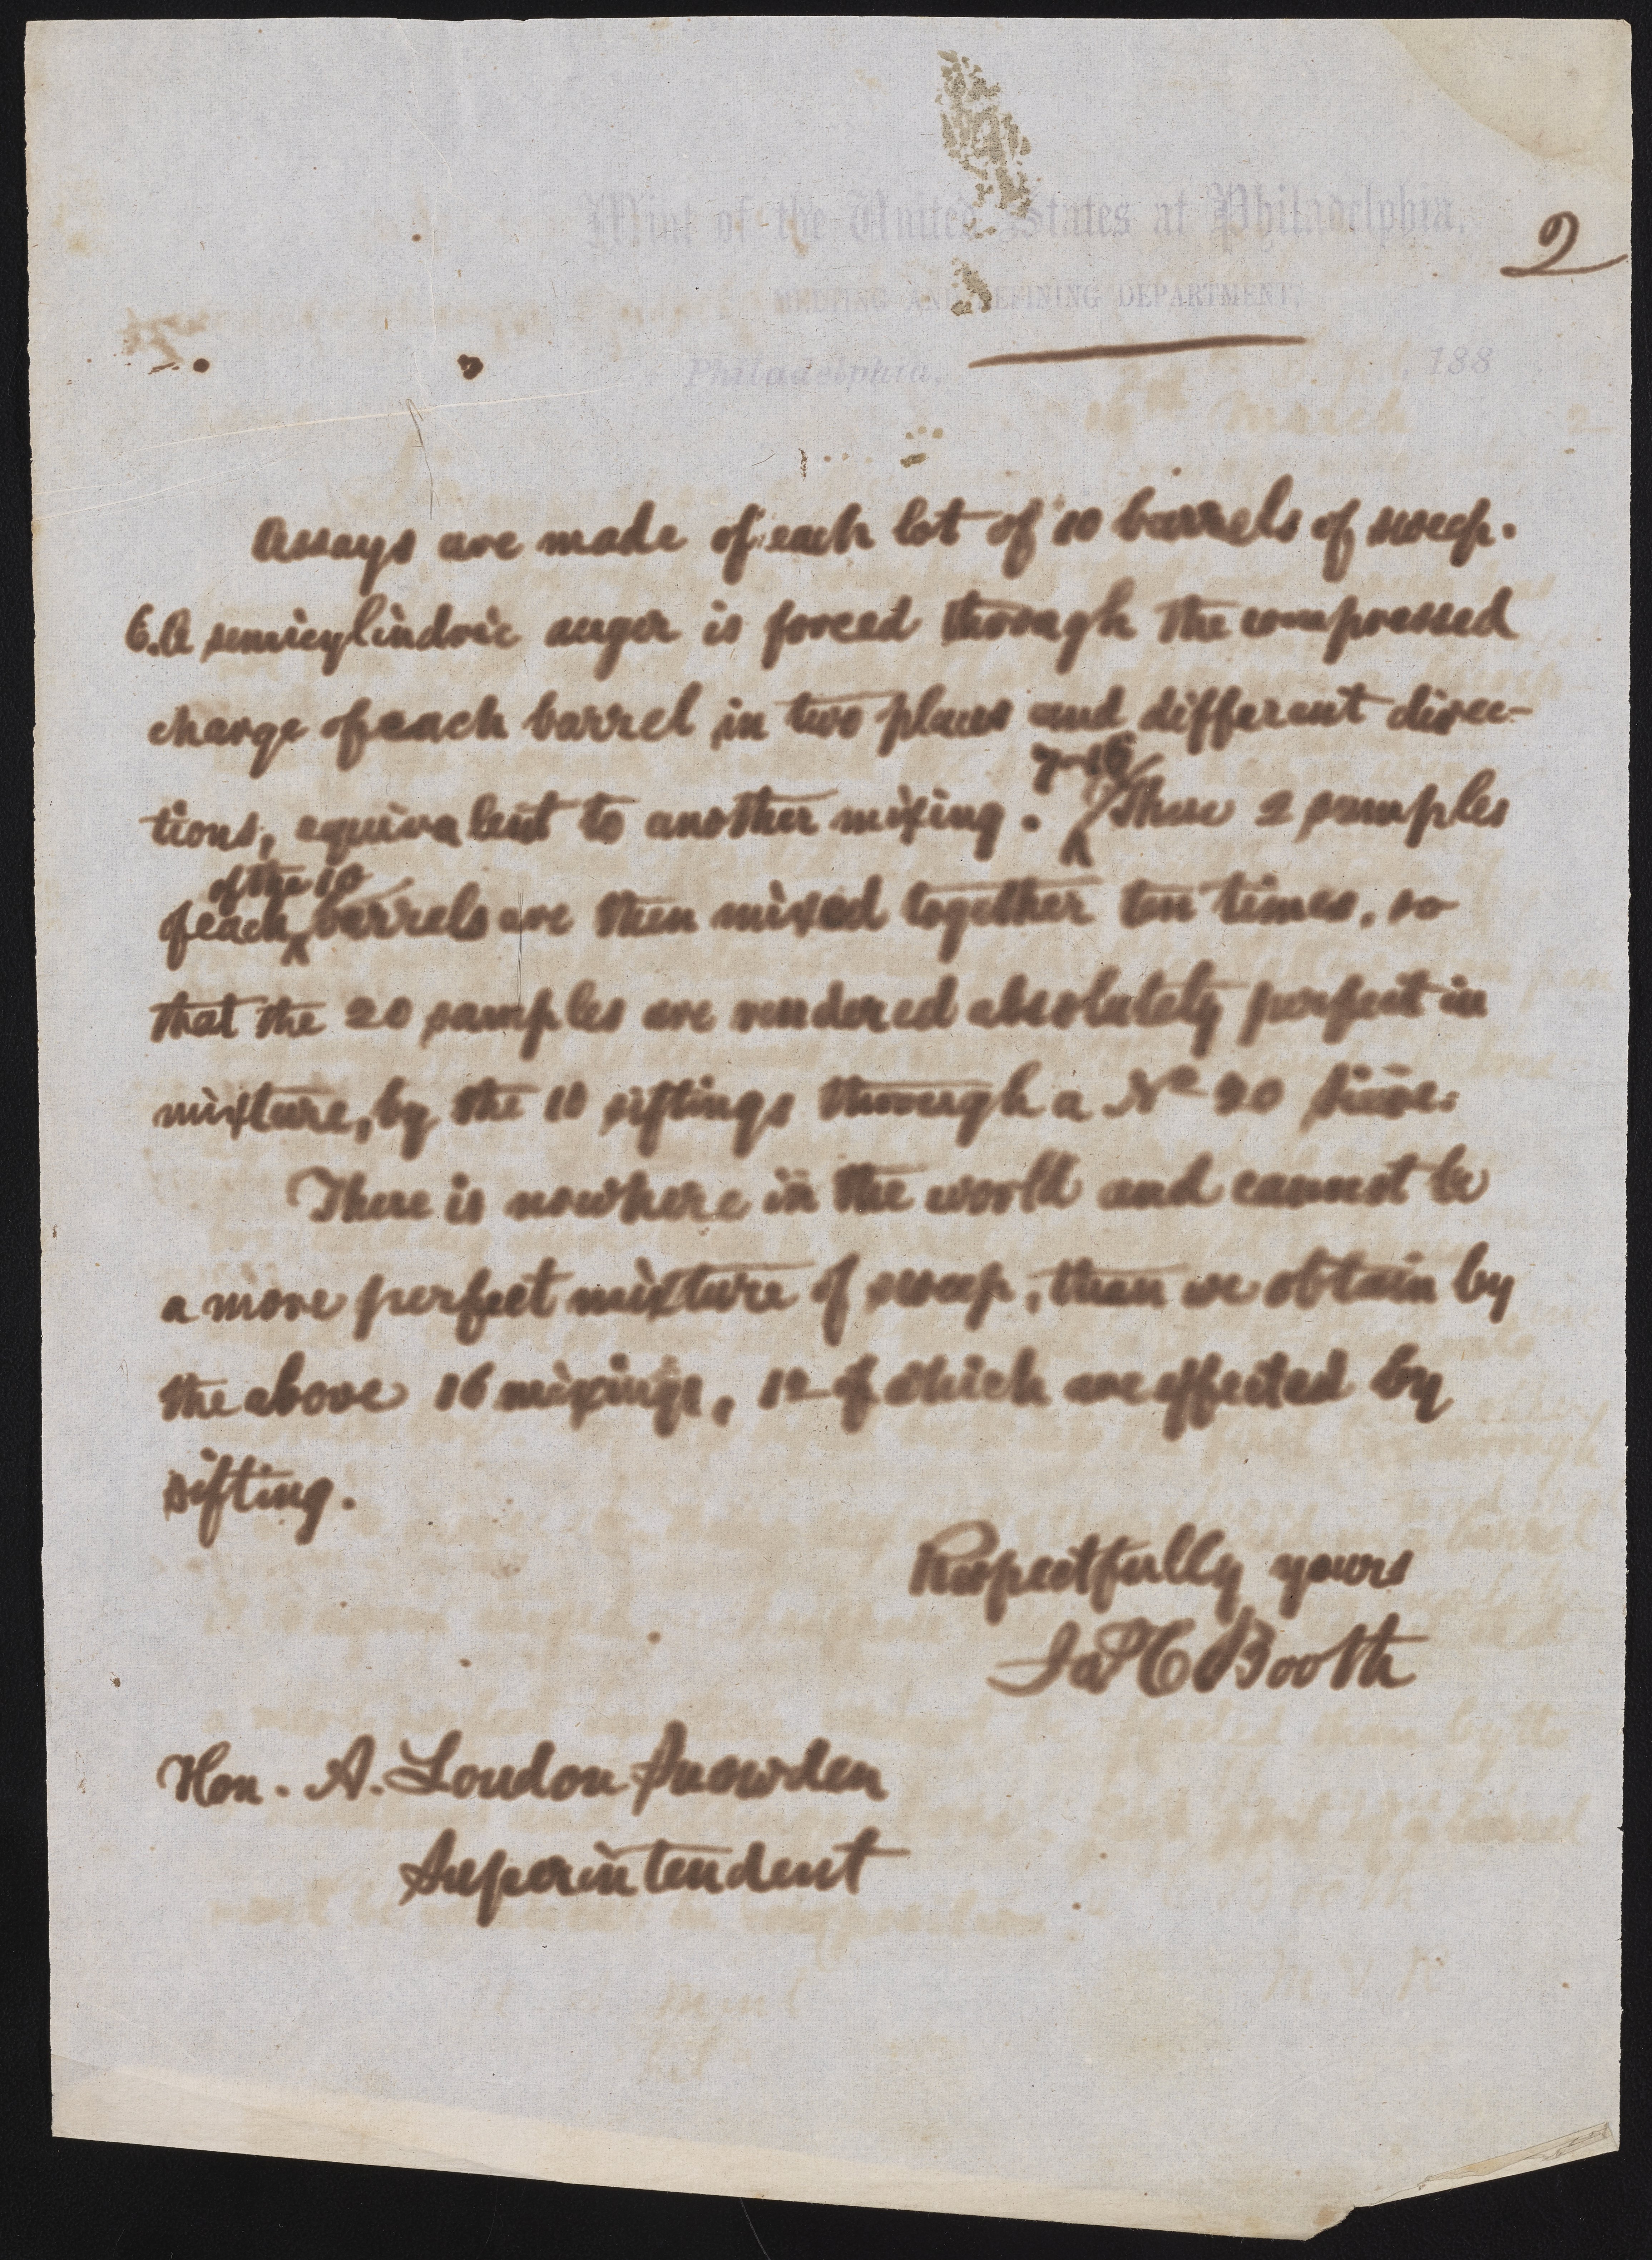 Mint of the United States at Philadelphia,
2
MELTING AND REFINING DEPARTMENT,
Philadelphia, 188
Assays are made of each lot of 10 barrels of sweep.
6. A semicylindric auger is forced through the compressed
charge of each barrel in two places and different direc-
tions, equivalent to another mixing. These 2 samples
of the 10
of each barrels are then mixed together ten times, so
that the 20 samples are rendered absolutely perfect in
mixture, by the 10 siftings through a No 20 sieve.
There is nowhere in the world and cannot be
a more perfect mixture of sweep, than we obtain by
the above 16 mixings, 12 of which are effected by
sifting.
Respectfully yours
Jas C Booth
Hon. A. Loudon Snowden
Superintendent